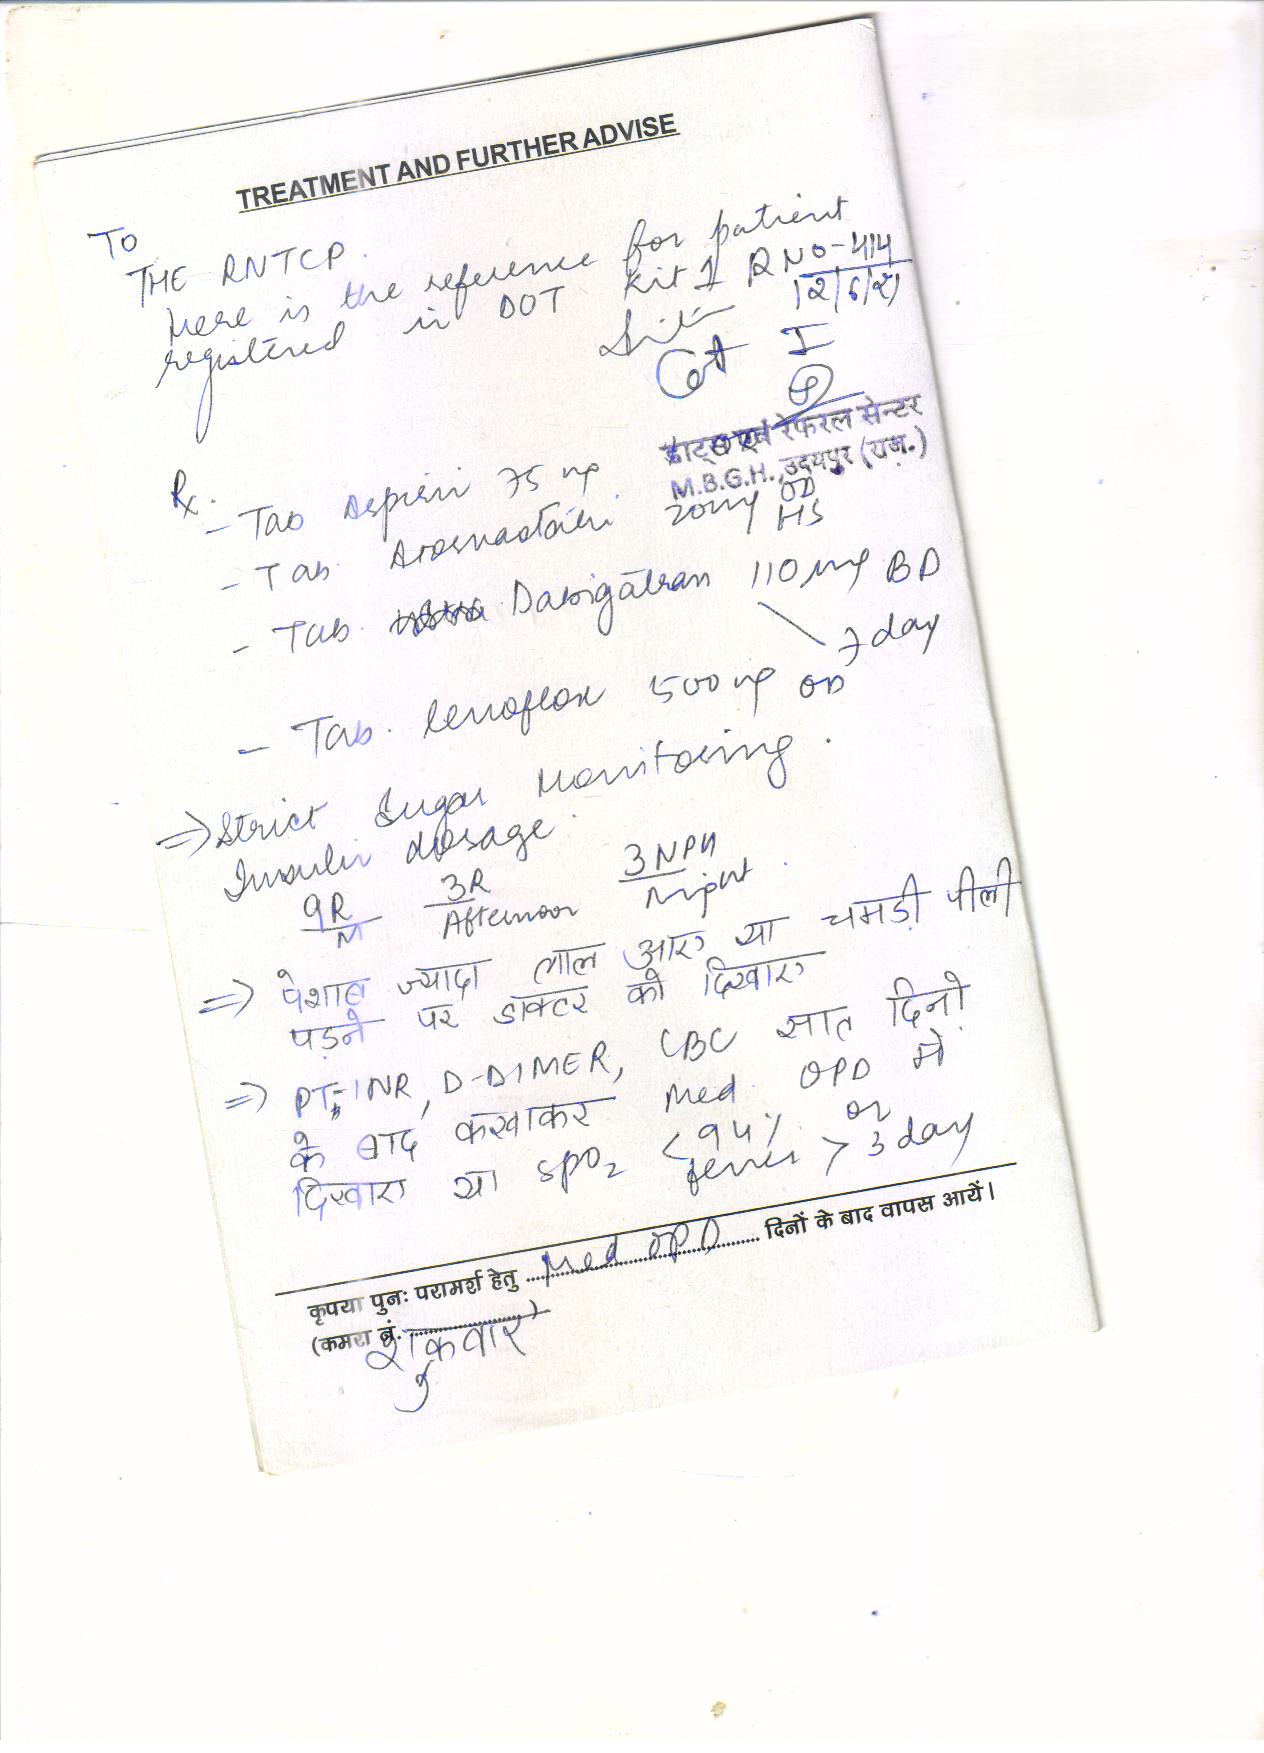 TREATMENT AND FURTHER ADVISE
To
THE RNTCP.
Here is the reference for patient
registered in DOT Kit 1 R NO-414
12/6/21
Cat I
डाट्स एवं रेफरल सेन्टर
M.B.G.H., उदयपुर (राज.)
Rx.
- Tab Aspirin 75 mg OD
- Tab. Atorvastatin 20mg HS
- Tab. Dabigatran 110 mg BD
7 day
- Tab. levoflox 500 mg OD
=> Strict Sugar Monitoring.
Insulin dosage.
9R 3R 3 NPH
M Afternoon Night
=> पेशाब ज्यादा लाल आए या चमड़ी पीली
पड़ने पर डाक्टर को दिखाए
=> PT-INR, D-DIMER, CBC सात दिनो
के बाद करवाकर Med. OPD मे
दिखाए या SpO2 <94% or
fever > 3 day
कृपया पुनः परामर्श हेतु Med OPD दिनों के बाद वापस आयें।
(कमरा नं. )
शुक्रवार